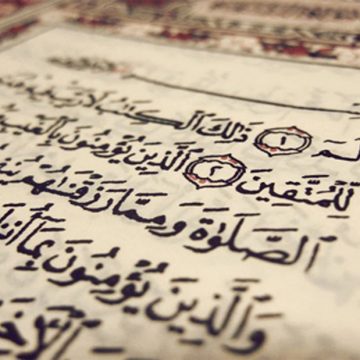 لٓمٓ ١ ذَٰلِكَ ٱلْكِتَٰبُ لَا رَيْبَ
لِّلْمُتَّقِينَ ٢ ٱلَّذِينَ يُؤْمِنُونَ بِٱلْغَيْبِ
ٱلصَّلَوٰةَ وَمِمَّا رَزَقْنَٰهُمْ
وَٱلَّذِينَ يُؤْمِنُونَ بِمَآ أُنزِ